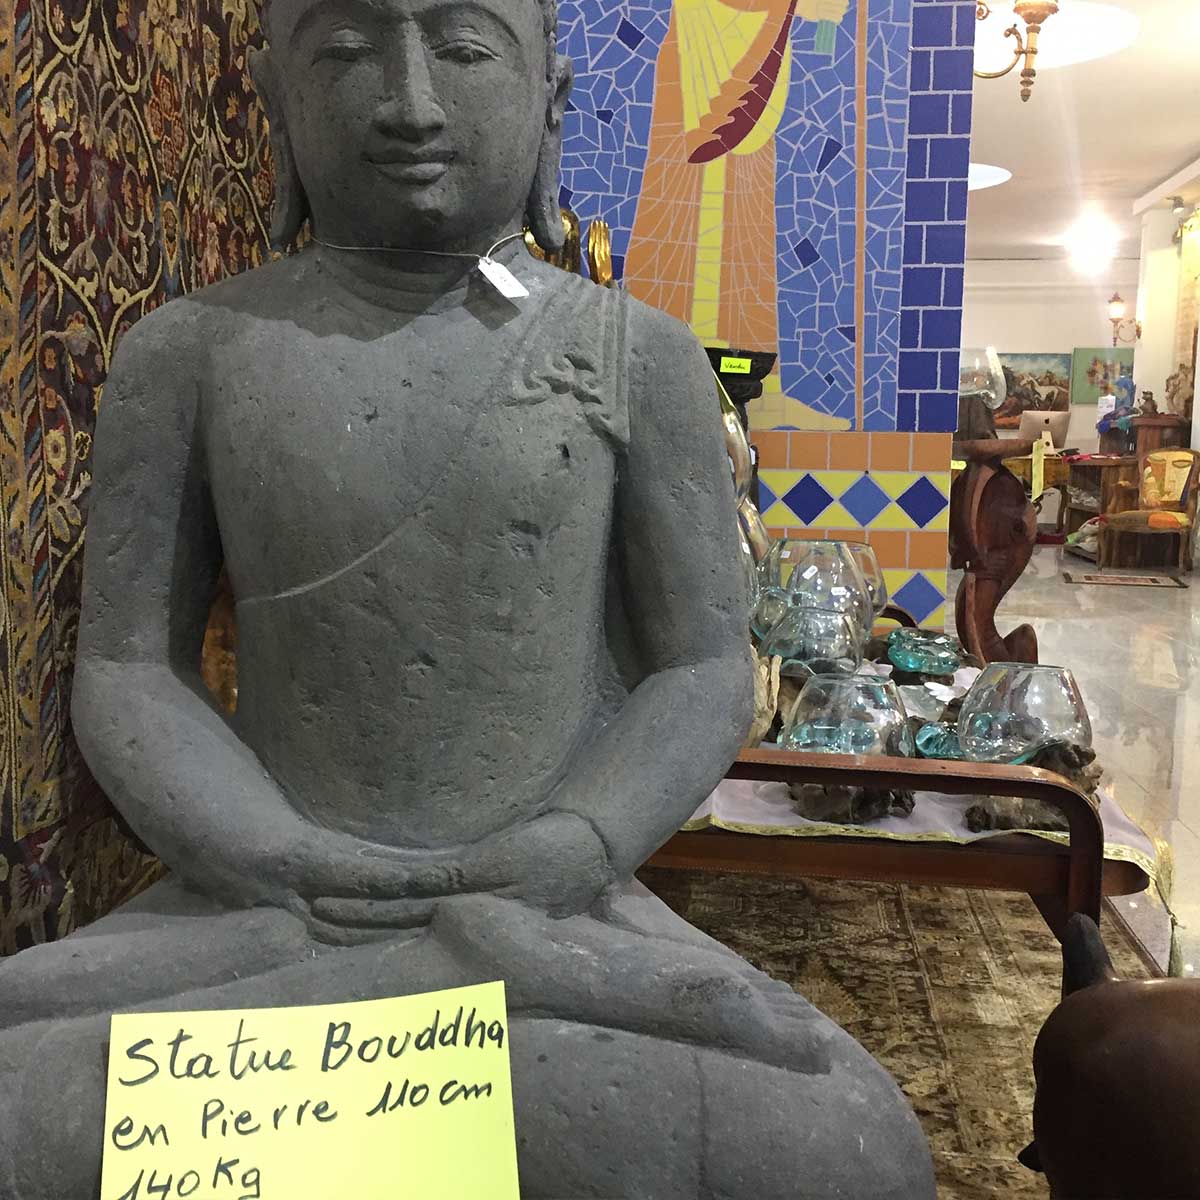 Vendu
Statue Bouddha
en Pierre 110 cm
140 Kg